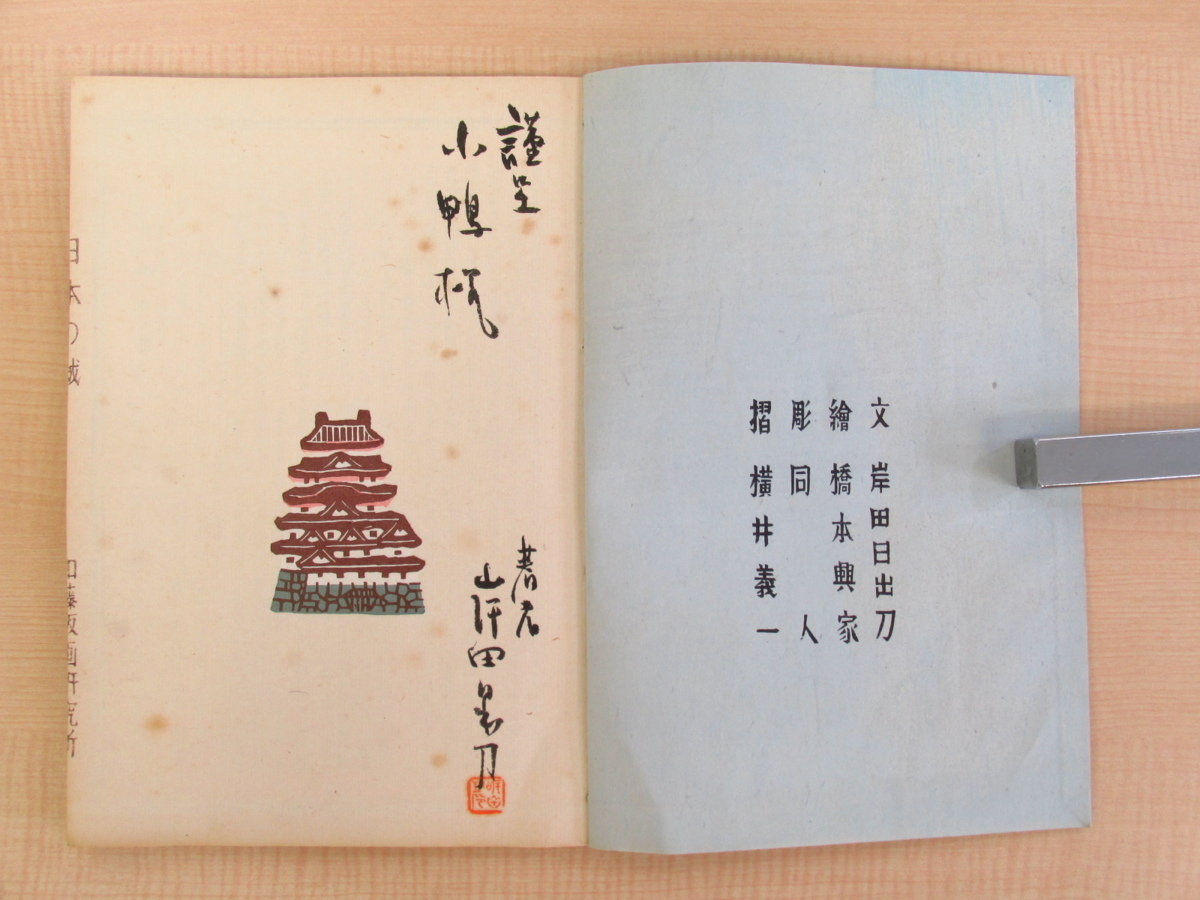 文 岸田日出刀
繪 橋本興家
彫 同人
摺 横井義一
謹呈
小鴨様
著者
岸田日出刀
日本の城
加藤版画研究所